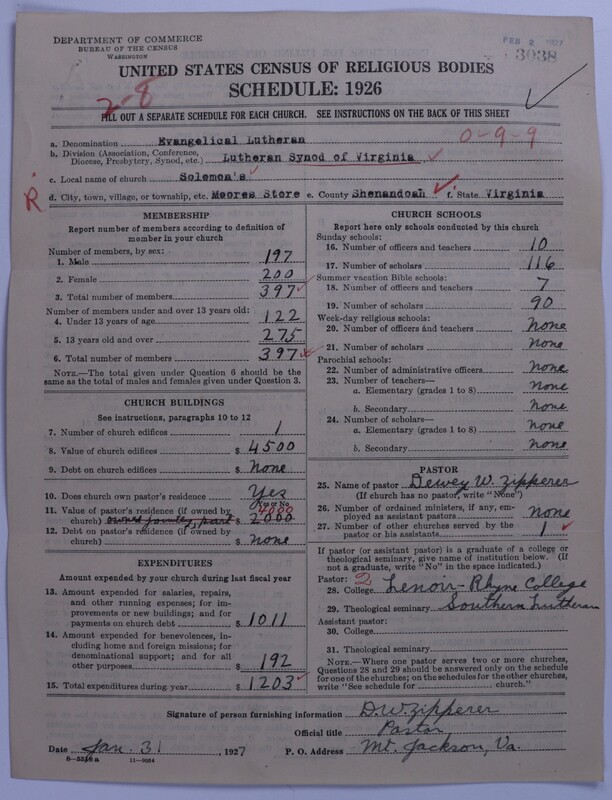 DEPARTMENT OF COMMERCE
BUREAU OF THE CENSUS
WASHINGTON
FEB 2 1927
3038
UNITED STATES CENSUS OF RELIGIOUS BODIES
SCHEDULE: 1926
2-8
FILL OUT A SEPARATE SCHEDULE FOR EACH CHURCH. SEE INSTRUCTIONS ON THE BACK OF THIS SHEET
a. Denomination Evangelical Lutheran 0-9-9
b. Division (Association, Conference, Diocese, Presbytery, Synod, etc.) Lutheran Synod of Virginia
c. Local name of church Solemon's
R.
d. City, town, village, or township, etc. Moores Store e. County Shenandoah f. State Virginia
MEMBERSHIP
Report number of members according to definition of
member in your church
Number of members, by sex:
1. Male 197
2. Female 200
3. Total number of members 397
Number of members under and over 13 years old:
4. Under 13 years of age 122
5. 13 years old and over 275
6. Total number of members 397
NOTE.—The total given under Question 6 should be
same as the total of males and females given under Question 3.
CHURCH BUILDINGS
See instructions, paragraphs 10 to 12
7. Number of church edifices 1
8. Value of church edifices $ 4500
9. Debt on church edifices $ None
10. Does church own pastor's residence? Yes
(Yes or No)
11. Value of pastor's residence (if owned by 4000
church) owned jointly, part $ 2000
12. Debt on pastor's residence (if owned by
church) $ none
EXPENDITURES
Amount expended by your church during last fiscal year
13. Amount expended for salaries, repairs,
and other running expenses; for im-
provements or new buildings; and for
payments on church debt $ 1011
14. Amount expended for benevolences, in-
cluding home and foreign missions; for
denominational support; and for all
other purposes $ 192
15. Total expenditures during year $ 1203
CHURCH SCHOOLS
Report here only schools conducted by this church
Sunday schools:
16. Number of officers and teachers 10
17. Number of scholars 116
Summer vacation Bible schools:
18. Number of officers and teachers 7
19. Number of scholars 90
Week-day religious schools:
20. Number of officers and teachers None
21. Number of scholars None
Parochial schools:
22. Number of administrative officers None
23. Number of teachers—
a. Elementary (grades 1 to 8) None
b. Secondary None
24. Number of scholars—
a. Elementary (grades 1 to 8) None
b. Secondary None
PASTOR
25. Name of pastor Dewey W. Zipperer
(If church has no pastor, write "None")
26. Number of ordained ministers, if any, em-
ployed as assistant pastors None
27. Number of other churches served by the
pastor or his assistants 1
If pastor (or assistant pastor) is a graduate of a college or
theological seminary, give name of institution below. (If
not a graduate, write "No" in the space indicated.)
Pastor: 2
28. College Lenoir-Rhyne College
29. Theological seminary Southern Lutheran
Assistant pastor:
30. College
31. Theological seminary
NOTE.—Where one pastor serves two or more churches,
Questions 28 and 29 should be answered only on the schedule
for one of the churches; on the schedules for the other churches,
write "See schedule for church."
Signature of person furnishing information D.W. Zipperer
Official title Pastor
Date Jan. 31 1927 P. O. Address Mt. Jackson, Va.
11—9054